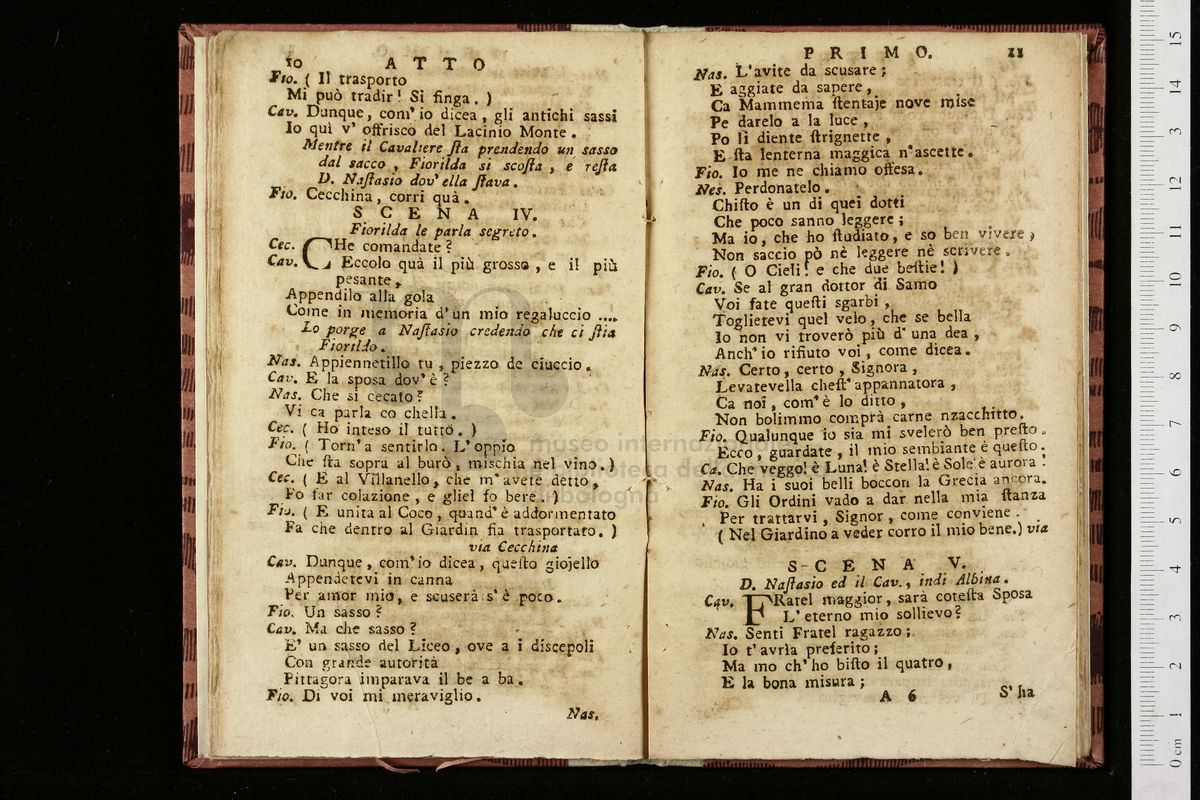 10 ATTO
Fio. ( Il trasporto
Mi può tradir! Si finga. )
Cav. Dunque, com' io dicea, gli antichi sassi
Io quì v' offrisco del Lacinio Monte.
Mentre il Cavaliere sta prendendo un sasso
dal sacco, Fiorilda si scosta, e resta
D. Nastasio dov' ella stava.
Fio. Cecchina, corri quà.
SCENA IV.
Fiorilda le parla segreto.
Cec. CHe comandate?
Cav. Eccolo quà il più grosso, e il più
pesante,
Appendilo alla gola
Come in memoria d' un mio regaluccio ....
Lo porge a Nastasio credendo che ci stia
Fiorilda.
Nas. Appiennetillo tu, piezzo de ciuccio.
Cav. E la sposa dov' è?
Nas. Che si cecato?
Vi ca parla co chella.
Cec. ( Ho inteso il tutto. )
Fio. ( Torn' a sentirlo. L' oppio
Che sta sopra al burò, mischia nel vino. )
Cec. ( E al Villanello, che m' avete detto,
Fo far colazione, e gliel fo bere. )
Fio. ( E unita al Coco, quand' è addormentato
Fa che dentro al Giardin sia trasportato. )
via Cecchina
Cav. Dunque, com' io dicea, questo giojello
Appendetevi in canna
Per amor mio, e scuserà s' è poco.
Fio. Un sasso?
Cav. Ma che sasso?
E' un sasso del Liceo, ove a i discepoli
Con grande autorità
Pittagora imparava il be a ba.
Fio. Di voi mi meraviglio.
Nas.
PRIMO. 11
Nas. L' avite da scusare;
E aggiate da sapere,
Ca Mammema stentaje nove mise
Pe darelo a la luce,
Po li diente strignette,
E sta lenterna maggica n' ascette.
Fio. Io me ne chiamo offesa.
Nes. Perdonatelo.
Chisto è un di quei dotti
Che poco sanno leggere;
Ma io, che ho studiato, e so ben vivere,
Non saccio pò nè leggere nè scrivere.
Fio. ( O Cieli! e che due bestie! )
Cav. Se al gran dottor di Samo
Voi fate questi sgarbi,
Toglietevi quel velo, che se bella
Io non vi troverò più d' una dea,
Anch' io rifiuto voi, come dicea.
Nas. Certo, certo, Signora,
Levatevella chest' appannatora,
Ca noi, com' è lo ditto,
Non bolimmo comprà carne nzacchitto.
Fio. Qualunque io sia mi svelerò ben presto.
Ecco, guardate, il mio sembiante è questo.
Ca. Che veggo! è Luna! è Stella! è Sole è aurora!
Nas. Ha i suoi belli boccon la Grecia ancora.
Fio. Gli Ordini vado a dar nella mia stanza
Per trattarvi, Signor, come conviene.
( Nel Giardino a veder corro il mio bene. ) via
SCENA V.
D. Nastasio ed il Cav., indi Albina.
Cav. FRatel maggior, sarà cotesta Sposa
L' eterno mio sollievo?
Nas. Senti Fratel ragazzo;
Io t' avria preferito;
Ma mo ch' ho bisto il quatro,
E la bona misura;
A 6 S' ha
museo internazionale
bologna
0 cm 1 2 3 4 5 6 7 8 9 10 11 12 13 14 15